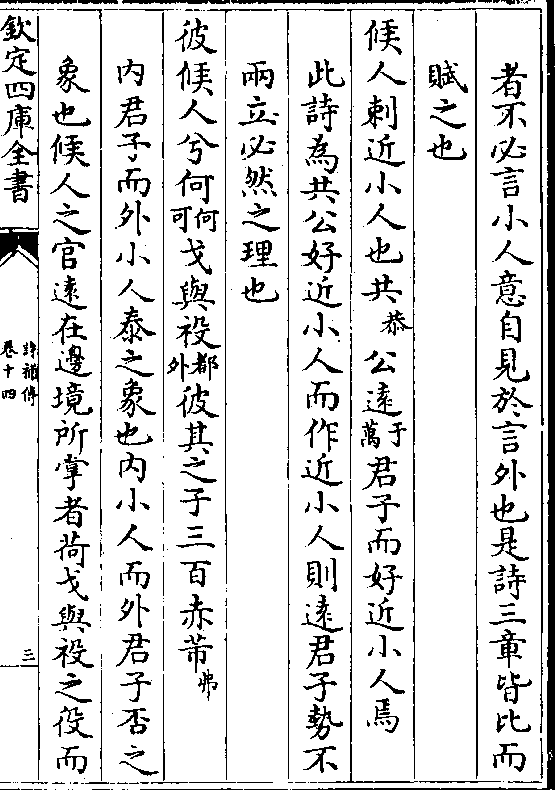 者不必言小人意自見於言外也是詩三章皆比而
賦之也
候人刺近小人也共恭公遠于萬君子而好近小人焉
此詩為共公好近小人而作近小人則遠君子勢不
兩立必然之理也
彼候人兮何何可戈與祋都外彼其之子三百赤芾弗
內君子而外小人泰之象也內小人而外君子否之
象也候人之官遠在邊境所掌者荷戈與祋之役而
欽定四庫全書
詩補傳
卷十四
三